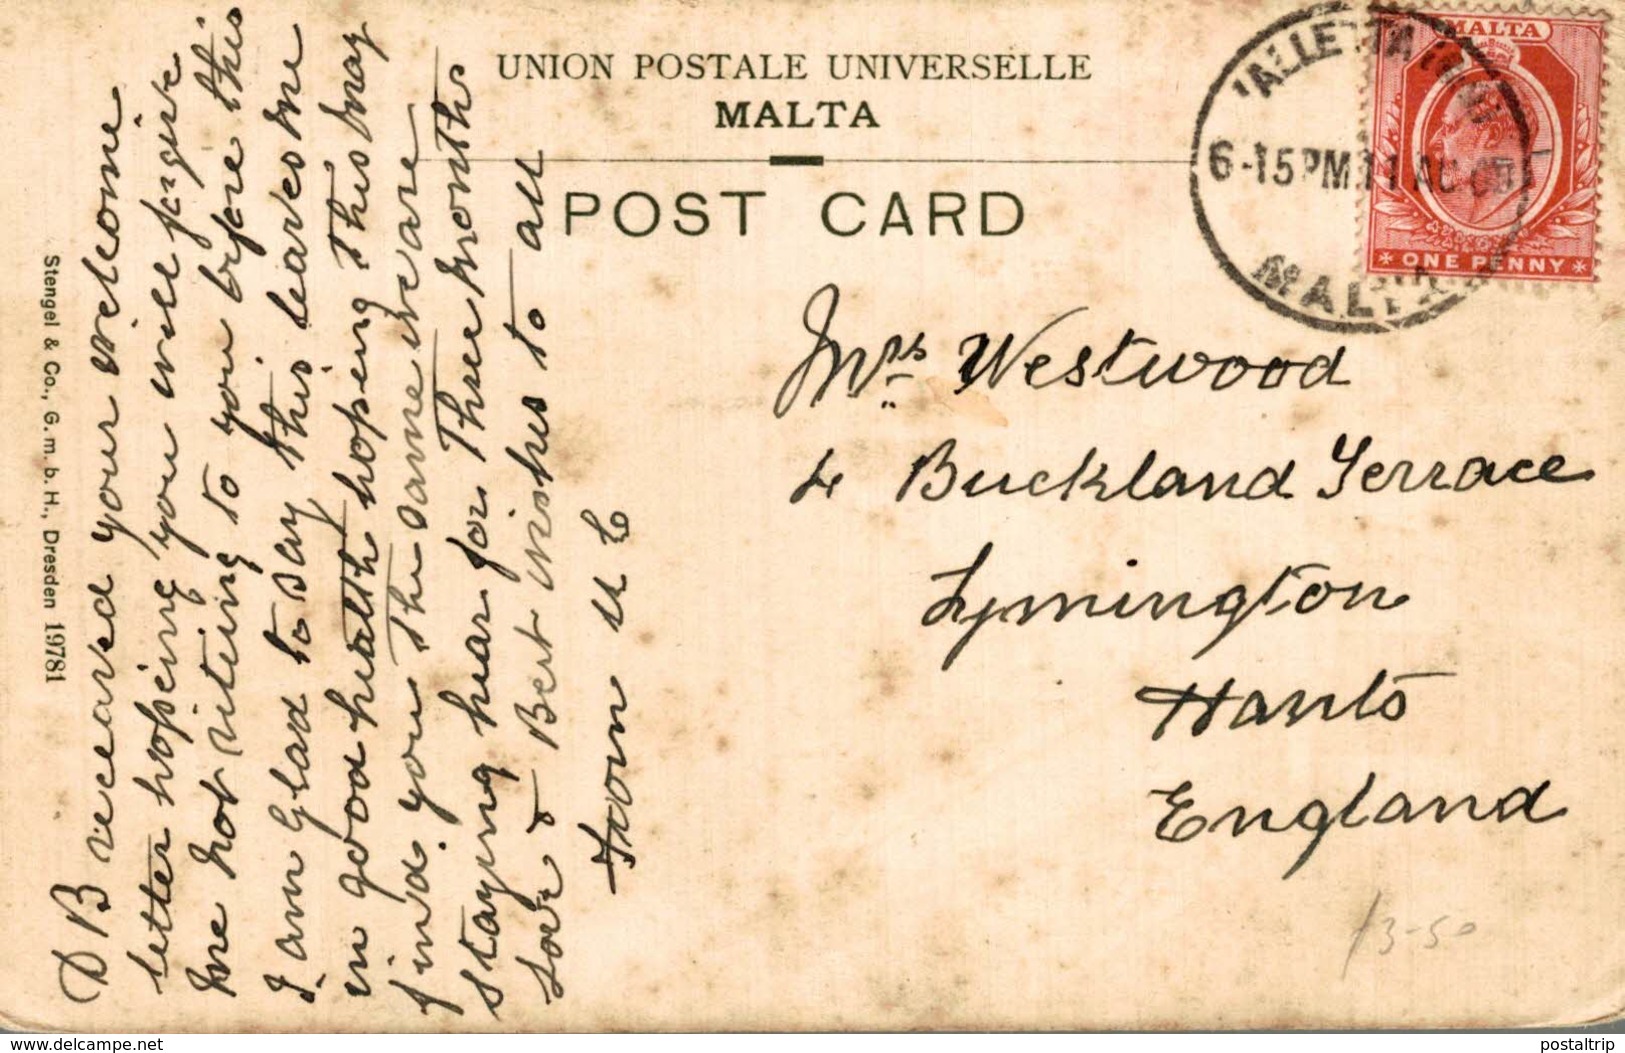 UNION POSTALE UNIVERSELLE
MALTA
POST CARD
MALTA
ONE PENNY
VALLETTA
6-15PM 11 AU
MALTA
D B receaved your welcome
letter hopeing you will forgive
me not riteing to you before this
I am Glad to say this leaves me
in good health hopeing this may
find you the same we are
staying hear for three months
Love & Best wishes to all
From U C
Mrs Westwood
4 Buckland Terrace
Lymington
Hants
England
13-50
Stengel & Co., G. m. b. H., Dresden 19781
delcampe.net
postaltrip